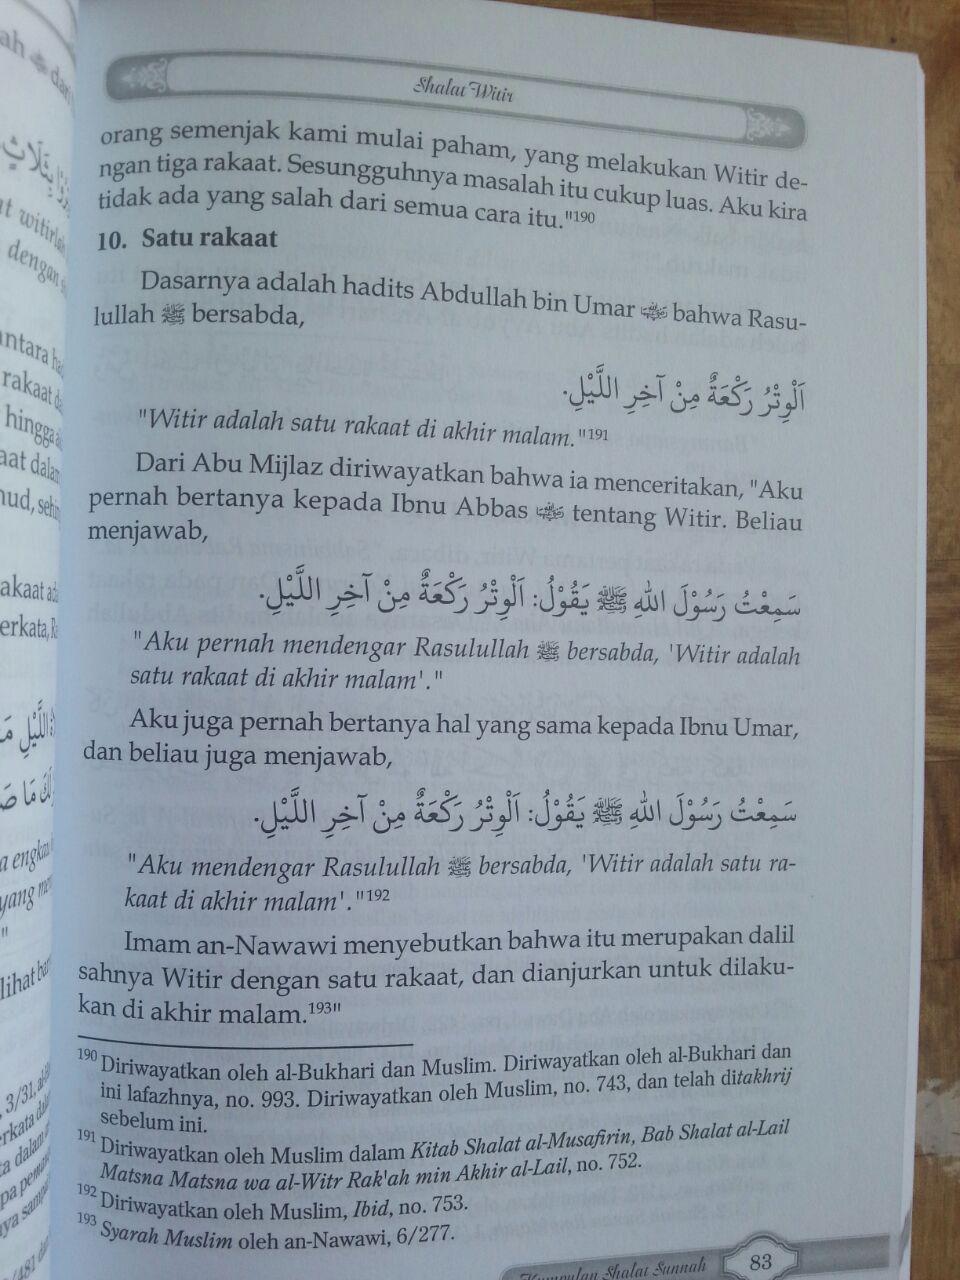 Shalat Witir
orang semenjak kami mulai paham, yang melakukan Witir de-
ngan tiga rakaat. Sesungguhnya masalah itu cukup luas. Aku kira
tidak ada yang salah dari semua cara itu."190
10. Satu rakaat
Dasarnya adalah hadits Abdullah bin Umar bahwa Rasu-
lullah ﷺ bersabda,
اَلْوِتْرُ رَكْعَةٌ مِنْ آخِرِ اللَّيْلِ.
"Witir adalah satu rakaat di akhir malam."191
Dari Abu Mijlaz diriwayatkan bahwa ia menceritakan, "Aku
pernah bertanya kepada Ibnu Abbas tentang Witir. Beliau
menjawab,
سَمِعْتُ رَسُوْلَ اللهِ ﷺ يَقُوْلُ: اَلْوِتْرُ رَكْعَةٌ مِنْ آخِرِ اللَّيْلِ.
"Aku pernah mendengar Rasulullah ﷺ bersabda, 'Witir adalah
satu rakaat di akhir malam'."
Aku juga pernah bertanya hal yang sama kepada Ibnu Umar,
dan beliau juga menjawab,
سَمِعْتُ رَسُوْلَ اللهِ ﷺ يَقُوْلُ: اَلْوِتْرُ رَكْعَةٌ مِنْ آخِرِ اللَّيْلِ.
"Aku mendengar Rasulullah ﷺ bersabda, 'Witir adalah satu ra-
kaat di akhir malam'."192
Imam an-Nawawi menyebutkan bahwa itu merupakan dalil
sahnya Witir dengan satu rakaat, dan dianjurkan untuk dilaku-
kan di akhir malam.193"
190 Diriwayatkan oleh al-Bukhari dan Muslim. Diriwayatkan oleh al-Bukhari dan
ini lafazhnya, no. 993. Diriwayatkan oleh Muslim, no. 743, dan telah ditakhrij
sebelum ini.
191 Diriwayatkan oleh Muslim dalam Kitab Shalat al-Musafirin, Bab Shalat al-Lail
Matsna Matsna wa al-Witr Rak'ah min Akhir al-Lail, no. 752.
192 Diriwayatkan oleh Muslim, Ibid, no. 753.
193 Syarah Muslim oleh an-Nawawi, 6/277.
Kumpulan Shalat Sunnah 83